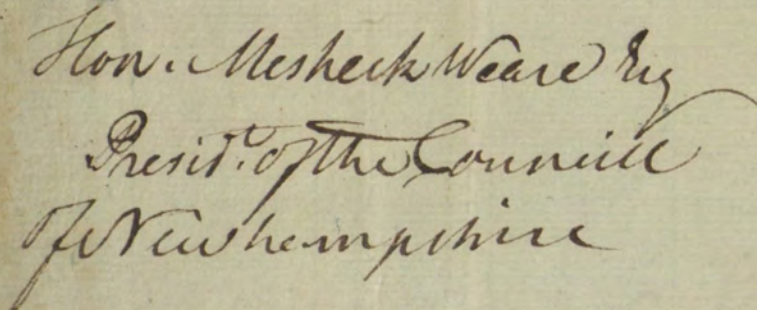 Hon. Mesheck Weare Esq
Presid.t of the Councill
of Newhempshire